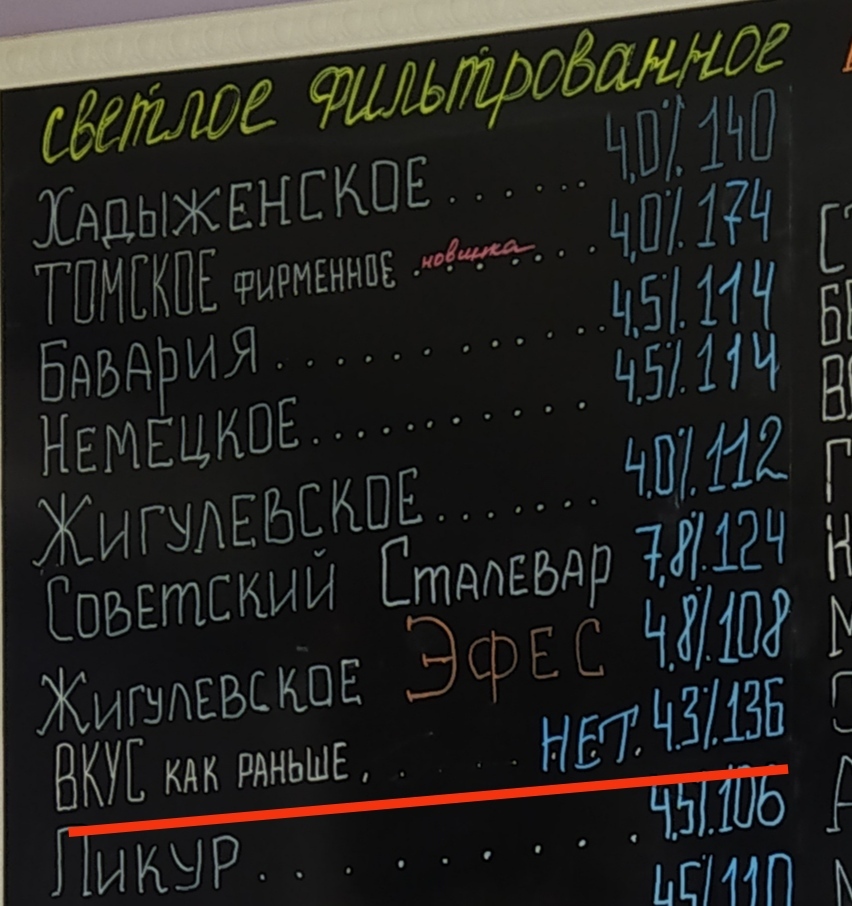 светлое фильтрованное
Хадыженское...... 4,0% 140
Томское фирменное новинка ....... 4,0% 174
Бавария .......... 4,5% 114
Немецкое.......... 4,5% 114
Жигулевское....... 4,0% 112
Советский Сталевар 7,8% 124
Жигулевское ЭФЕС 4,8% 108
ВКУС как раньше, .... НЕТ. 4.3% 136
Пикур .......... 4,5% 106
4,5% 110